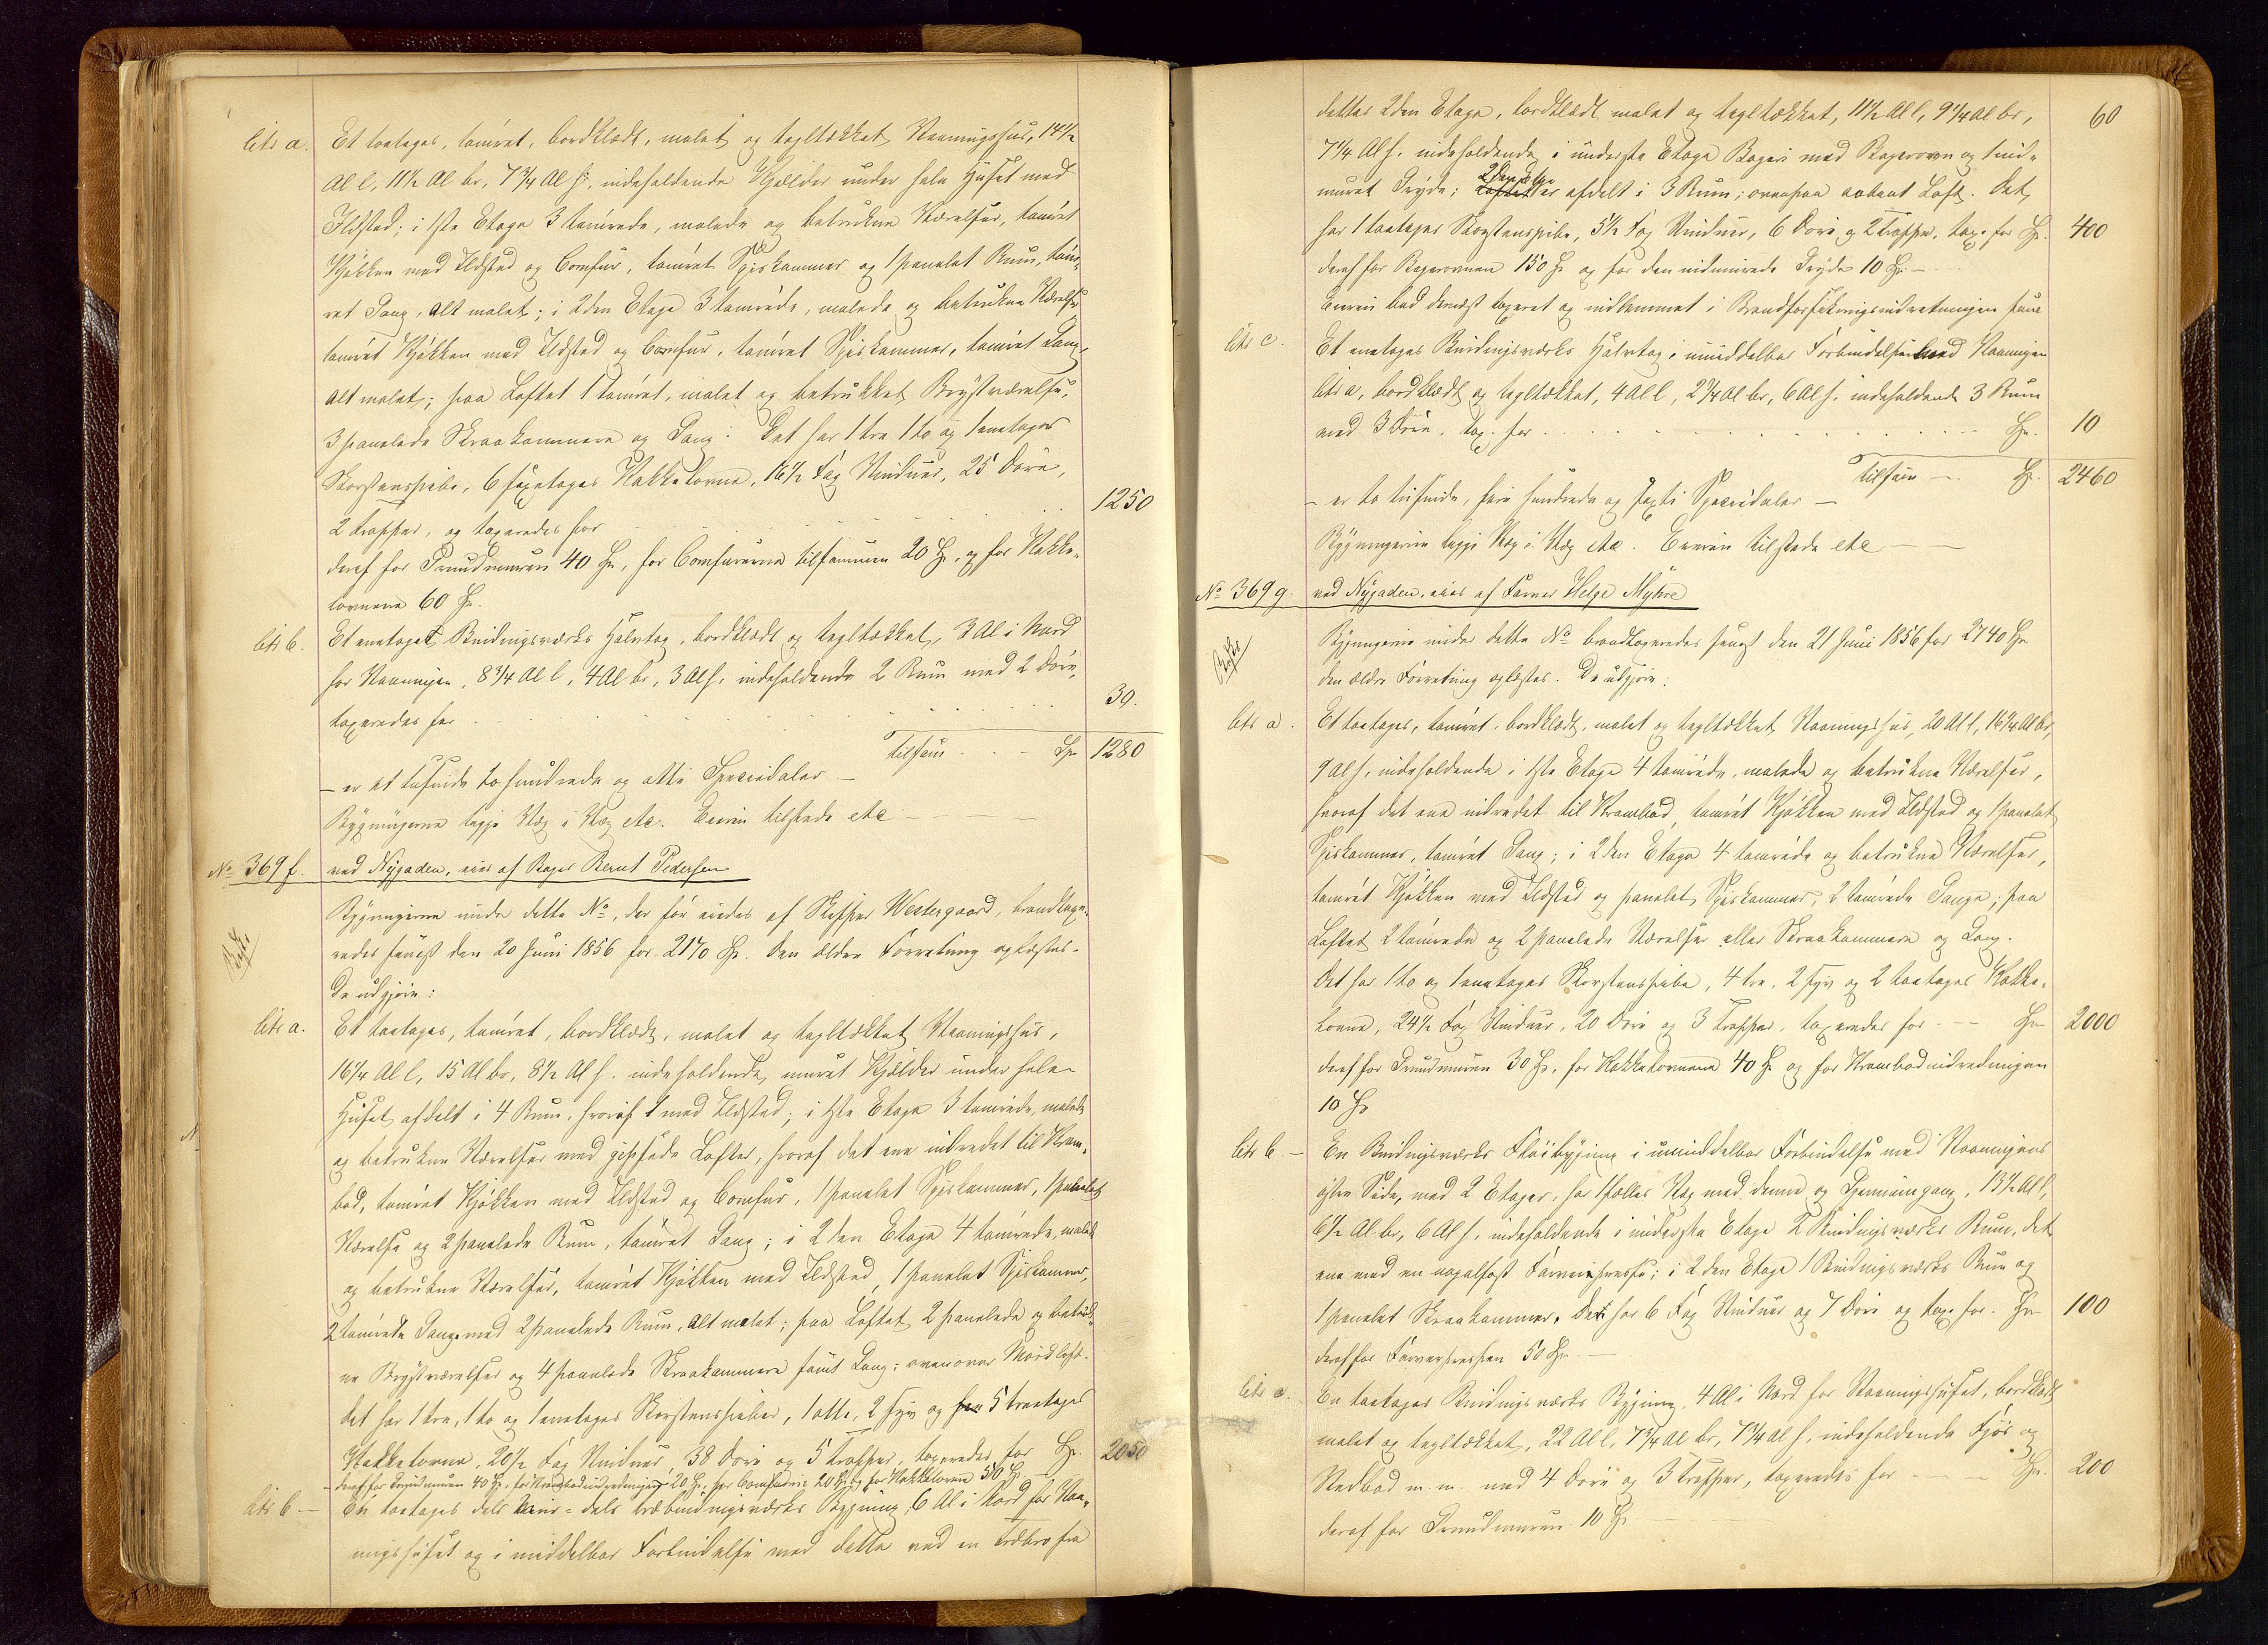 Litr a. Et toetages, tømret, bordklædt, malet og tegltækket Vaaningshus, 14½
Al l, 11½ Al br, 7¾ Al h, indeholdende Kjælder under hele Huset med
Ildsted; i 1ste Etage 3 tømrede, malede og betrukne Værelser, tømret
Kjøkken med Ildsted og Comfur, tømret Spiskammer og 1 panelet Rum, tøm-
ret Gang, alt malet; i 2den Etage 3 tømrede, malede og betrukne Værelser,
tømret Kjøkken med Ildsted og Comfur, tømret Spiskammer, tømret Gang,
alt malet; paa Loftet 1 tømret, malet og betrukket Brystværelse,
3 panelede Skraakammere og Gang. Det har 1 tre 1 to og 1 enetages
Skorstenspibe, 6 sexetages Kakkelovne, 16½ Fag Vinduer, 25 Døre,
2 Trapper, og taxeredes for 1250
deraf for Grundmuren 40 Sp., for Comfurerne tilsammen 20 Sp. og for Kakke-
lovnene 60 Sp.
Litr b. Et enetaget Bindingsværks Halvtag, bordklædt og tegltækket, 3 Al i Nord
for Vaaningen, 8¾ Al l, 4 Al br, 3 Al h, indeholdende 2 Rum med 2 Døre,
taxeredes for 30.
tilsam Sp 1280
– er et tusinde to hundrede og otti Speciedaler –
Bygningerne ligge Væg i Væg etc. Eieren tilstede etc –
No 369 f. ved Nygaden, eies af Bager Bernt Pedersen
Bygningerne under dette No, der før eiedes af Skipper Westergaard, brandtaxe-
redes senest den 20 Juni 1856 for 2170 Sp. Den ældre Forretning oplæstes.
De udgjøre:
Litr a. Et toetages, tømret, bordklædt, malet og tegltækket Vaaningshus,
16¼ Al l, 15 Al br, 8½ Al h. indeholdende muret Kjælder under hele
Huset afdelt i 4 Rum, hvoraf 1 med Ildsted; i 1ste Etage 3 tømrede, malede
og betrukne Værelser med gipsede Lofter, hvoraf det ene indredet til Kram-
bod, tømret Kjøkken med Ildsted og Comfur, 1 panelet Spiskammer, 1 panelet
Værelse og 2 panelede Rum, tømret Gang; i 2den Etage 4 tømrede, malede
og betrukne Værelser, tømret Kjøkken med Ildsted, 1 panelet Spiskammer,
2 tømrede Gange med 2 panelede Rum, alt malet; paa Loftet 2 panelede og betruk-
ne Brystværelser og 4 panelede Skraakammere samt Gang; ovenover Mørkloft.
Det har 1 tre, 1 to og 1 enetages Skorstenspiber, 1 otte, 2 syv og 5 treetages
Kakkelovne, 20½ Fag Vinduer, 38 Døre og 5 Trapper, taxeredes for Sp. 2050
– deraf for Grundmuren 40 Sp., for Krambodindredningen 20 Sp., for Comfuret 20 Sp. og for Kakkelovnene 50 Sp.
Litr b – En toetages dels muur- dels træbindingsværks Bygning, 6 Al i Nord for Vaa-
ningshuset og i middelbar Forbindelse med dette ved en Træbro fra
dettes 2den Etage, bordklædt malet og tegltækket, 11½ Al l, 9¼ Al br, 60
7¼ Al h. indeholdende i underste Etage Bageri med Bagerovn og 1 ind-
muret Gryde; 2den Etge er afdelt i 3 Rum; ovenpaa aabent Loft. Det
har 1 toetages Skorstenspibe, 5½ Fag Vinduer, 6 Døre og 2 Trapper, tax. for Sp. 400
deraf for Bagerovnen 150 Sp og for den indmurede Gryde 10 Sp. –
Eieren bad dernæst taxeret og indlemmet i Brandforsikringsindretningen
Litr c. Et enetages Bindingsværks Halvtag i umiddelbar Forbindelse med Vaaningen
litr a, bordklædt og tegltækket, 4 Al l, 2¾ Al br, 6 Al h. indeholdende 3 Rum
med 3 Døre, tax. for Sp. 10
tilsam – Sp. 2460
– er to tusinde, fire hundrede og sexti Speciedaler –
Bygningerne ligge Væg i Væg etc. Eieren tilstede etc –
No 369 g. ved Nygaden, eies af Farver Helge Myhre
Bygningerne under dette No brandtaxeredes senest den 21 Juni 1856 for 2740 Sp
den ældre Forretning oplæstes. De udgjøre:
Litr a. Et toetages, tømret, bordklædt, malet og tegltækket Vaaningshus, 20 Al l, 16¼ Al br,
9 Al h, indeholdende i 1ste Etage 4 tømrede, malede og betrukne Værelser,
hvoraf det ene indredet til Krambod, tømret Kjøkken med Ildsted og 1 panelet
Spiskammer, tømret Gang; i 2den Etage 4 tømrede og betrukne Værelser,
tømret Kjøkken med Ildsted og panelet Spiskammer, 2 tømrede Gange; paa
Loftet 2 tømrede og 2 panelede Værelser eller Skraakammere og Gang.
Det har 1 to og 1 enetages Skorstenspibe, 4 tre, 2 syv og 2 toetages Kakke-
lovne, 24½ Fag Vinduer, 20 Døre og 3 Trapper, taxeredes for – Sp 2000
deraf for Grundmuren 30 Sp, for Kakkelovnene 40 Sp og for Krambodindredningen
10 Sp
Litr b. – En Bindingsværks Fløibygning i umiddelbar Forbindelse med Vaaningens
østre Side, med 2 Etager, har fælles Væg med denne og Gjennemgang, 13½ Al l,
6½ Al br, 6 Al h, indeholdende i underste Etage 2 Bindingsværks Rum, det
ene med en nagelfast Farverpresse; i 2den Etage 1 Bindingsværks Rum og
1 panelet Skraakammer. Den har 6 Fag Vinduer og 7 Døre og tax. for. Sp 100
deraf for Farverpressen 50 Sp. –
Litr c. En toetages Bindingsværks Bygning, 4 Al i Nord for Vaaningshuset, bordklædt
malet og tegltækket, 22 Al l, 7¾ Al br, 7¼ Al h, indeholdende Fjøs og
Vedbod m.m. med 4 Døre og 3 Trapper, taxeredes for – Sp. 200
deraf for Grundmuren 10 Sp. –